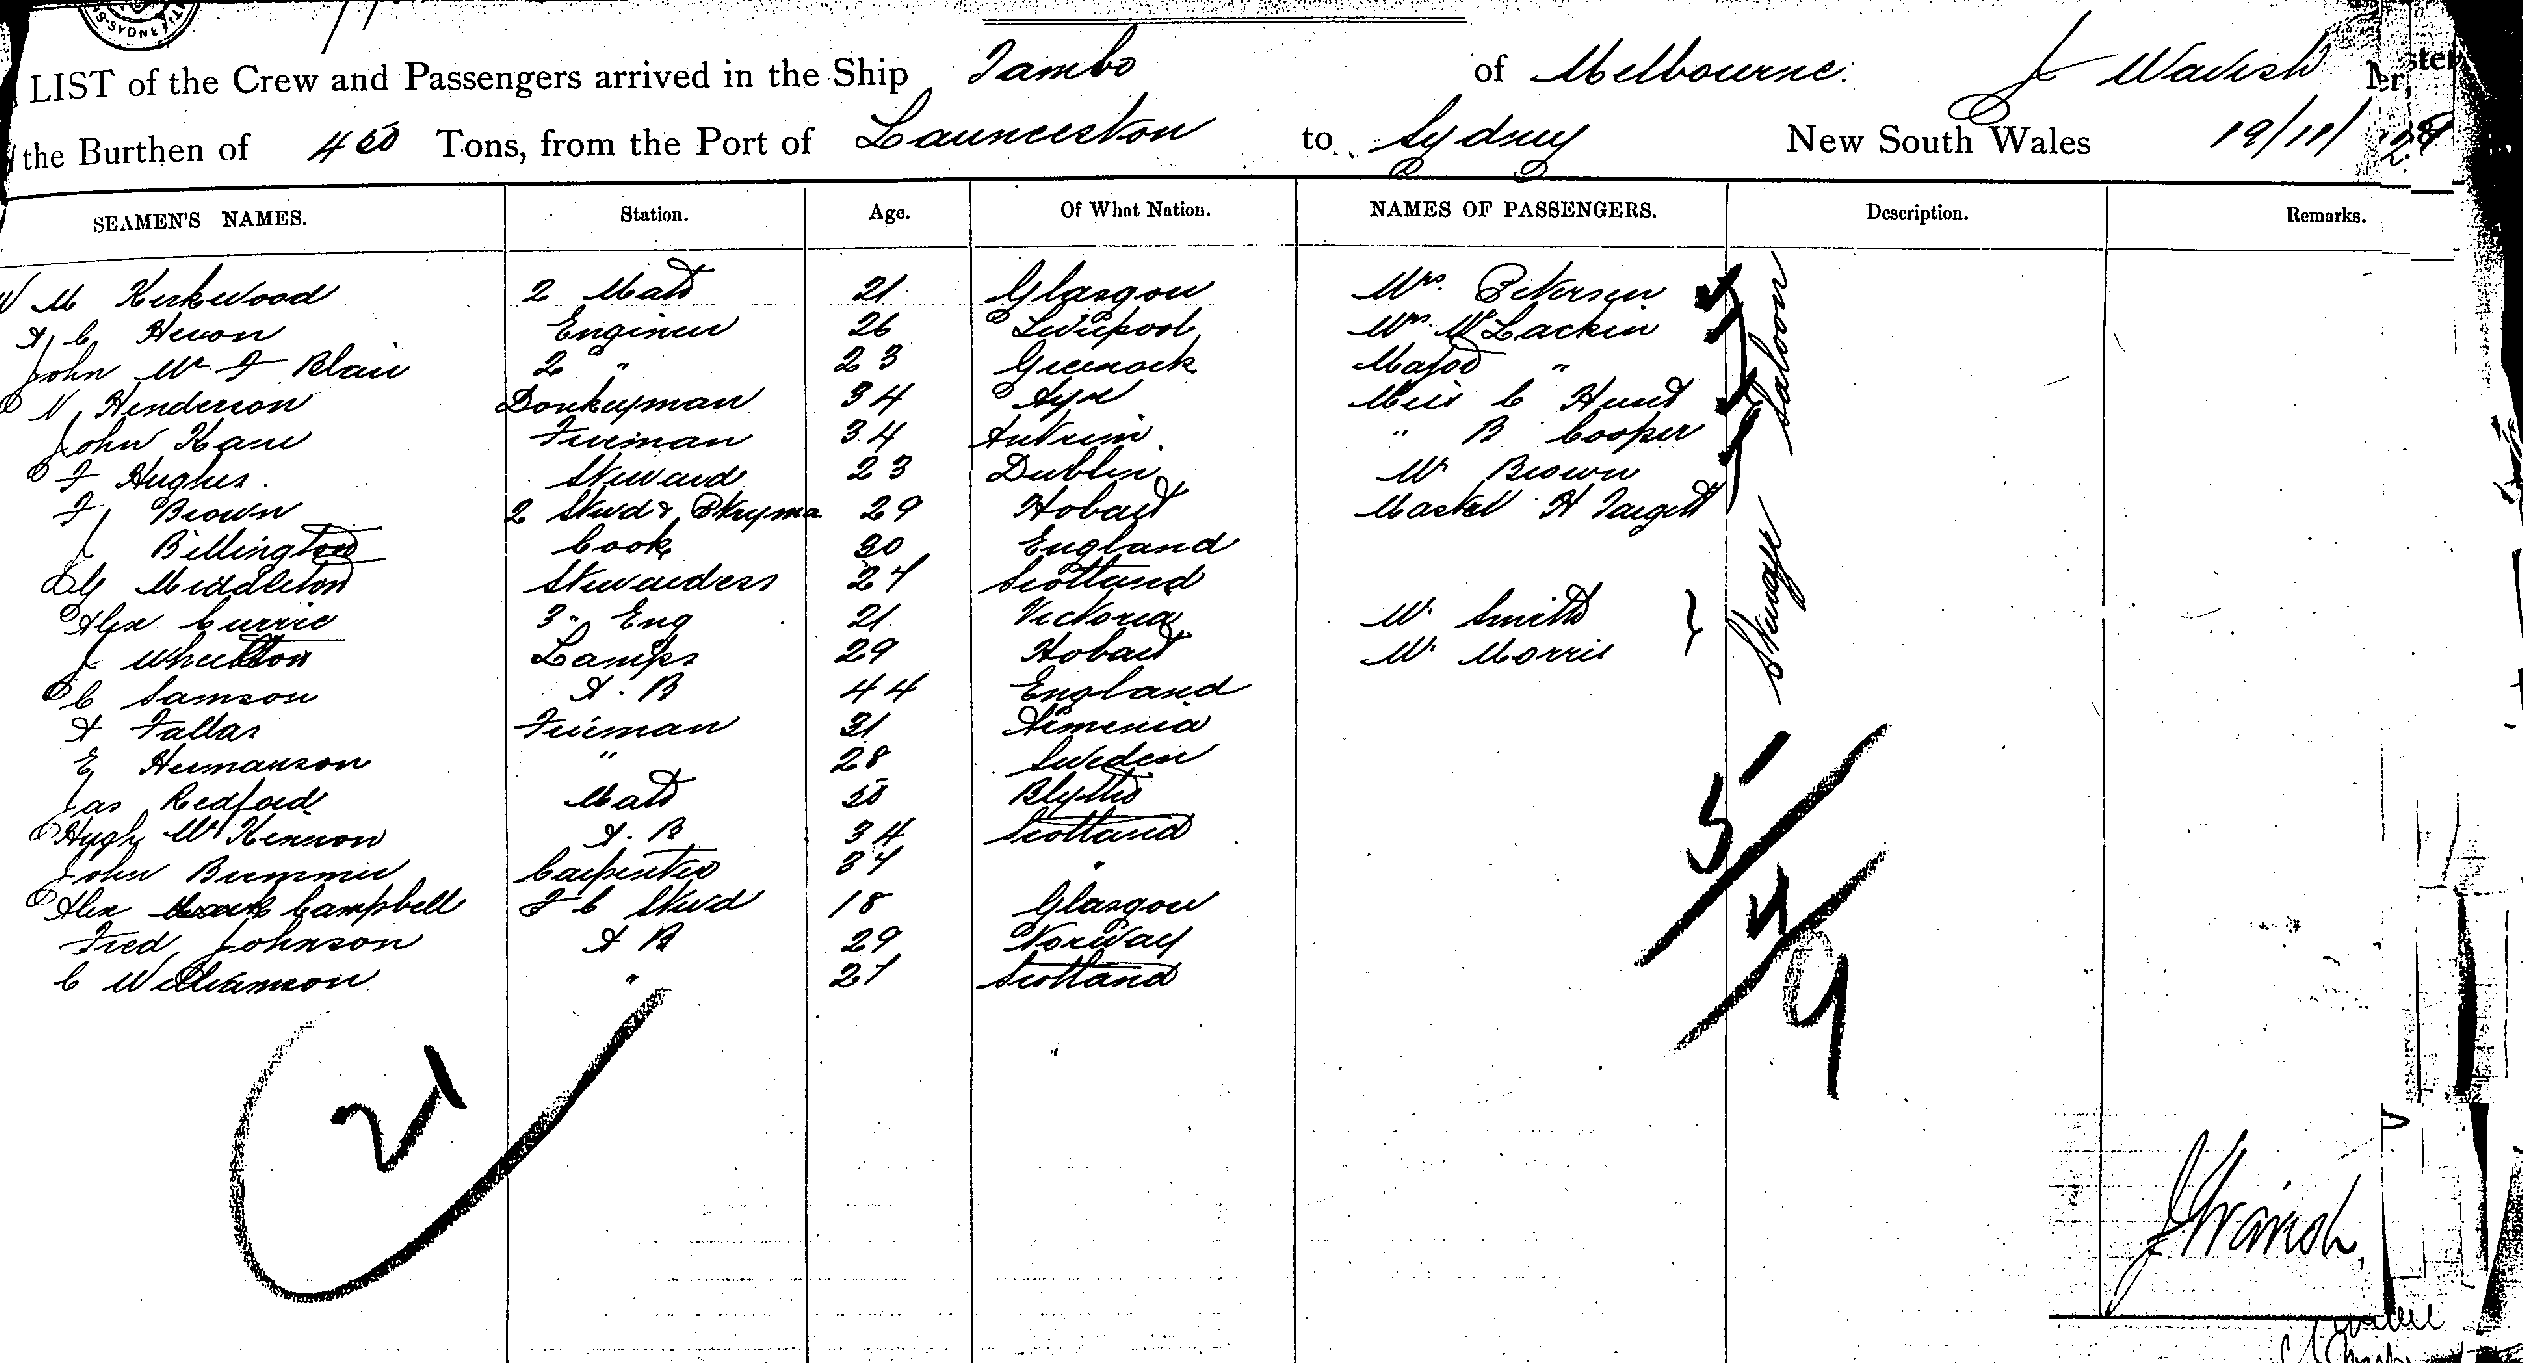 SYDNEY
LIST of the Crew and Passengers arrived in the Ship Tambo of Melbourne. J Wavish Master,
the Burthen of 450 Tons, from the Port of Launceston to Sydney New South Wales 19/11/
SEAMEN'S NAMES. Station. Age. Of What Nation. NAMES OF PASSENGERS. Description. Remarks.
W M Kirkwood 2 Mate 21 Glasgow Mrs. Petersen
A. C. Heron Engineer 26 Liverpool Mrs. McLackin
John Mc F Blair 2 " 23 Greenock Master "
N. Henderson Donkeyman 34 Ayr Miss C Hunt
John Kane Fireman 34 Antrim " B Cooper
F Hughes. Steward 23 Dublin Mr Brown
F Brown 2 Stwd & 29 Hobart Master H Targett
Saloon
J Billington Cook 30 England
M Middleton Stewardess 27 Scotland
Alex Currie 3 " Eng 21 Victoria Mr Smith
J Lamps 29 Hobart Mr Morris
Steerage
C Samson A. B 44 England
A Fallas Fireman 31 Armenia
E Hermanson " 28 Sweden
Jas Redford Mate 50 Blyth
Hugh McKinnon A. B 34 Scotland
John Bremner Carpenter 37 "
Alex Campbell F C Stwd 18 Glasgow
Fred Johnson A B 29 Norway
C Williamson " 27 Scotland
5
4
9
21
J Wavish